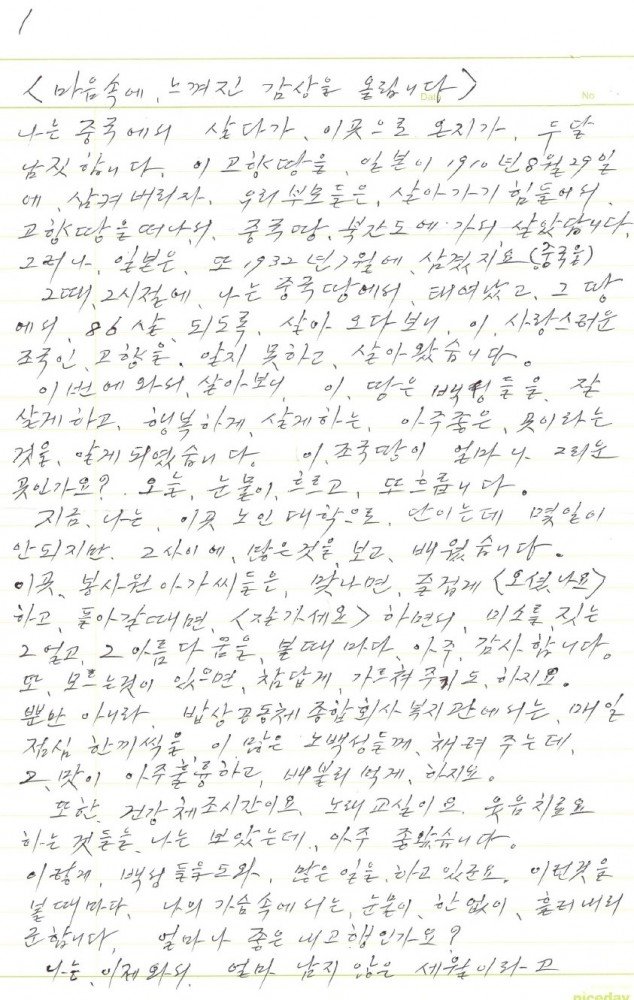 1
<마음속에, 느껴진 감상을 올립니다>
Date No
나는 중국에서 살다가, 이곳으로 온지가, 두달
남짓합니다. 이 고향땅을, 일본이 1910년8월29일
에, 삼켜버리자. 우리부모들은, 살아가기 힘들어서,
고향땅을 떠나서, 중국땅, 북간도에 가서 살았답니다.
그러나, 일본은, 또 1932년7월에, 삼켰지요(중국을)
그때, 그시절에, 나는 중국땅에서, 태여났고, 그 땅
에서, 86살, 되도록, 살아 오다보니, 이, 사랑스러운
조국인, 고향을, 알지 못하고, 살아왔습니다.
이번에 와서, 살아보니, 이, 땅은 백성들을, 잘
살게하고, 행복하게, 살게하는, 아주좋은, 곳이라는
것을, 알게 되였습니다. 이, 조국땅이 얼마나 그리운
곳인가요? 오늘, 눈물이, 흐르고, 또 흐릅니다.
지금, 나는, 이곳 노인대학으로, 단이는데 몇일이
안되지만. 그사이에, 많은것을, 보고, 배웠습니다.
이곳, 봉사원아가씨들은, 맞나면, 즐겁게 <오셨나요>
하고, 돌아갈때면, <잘가세요> 하면서, 미소를, 짓는
그얼고, 그아름다움을, 볼때마다, 아주, 감사합니다.
또, 모르는것이 있으면, 참답게, 가르쳐주기도, 하지요.
뿐만 아니라, 밥상공동체종합회사복지관에서는, 매일
점심 한끼씩을, 이 많은 노백성들께, 채려 주는데,
그, 맛이 아주훌륭하고, 배불리 먹게, 하지요.
또한, 건강체조시간이요, 노래교실이요, 웃음치료요
하는 것들을, 나는 보았는데, 아주 좋았습니다.
이렇게, 백성들을 도와, 많은일을, 하고 있군요. 이런것을
볼때마다, 나의 가슴속에서는, 눈물이, 한없이, 흘러내리
군합니다, 얼마나 좋은 내고향인가요?
나는, 이제와서, 얼마 남지 않은 세월이라고
niceday